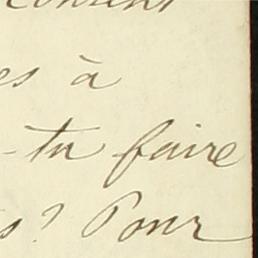 consent
es à
-tu faire
s? Pour